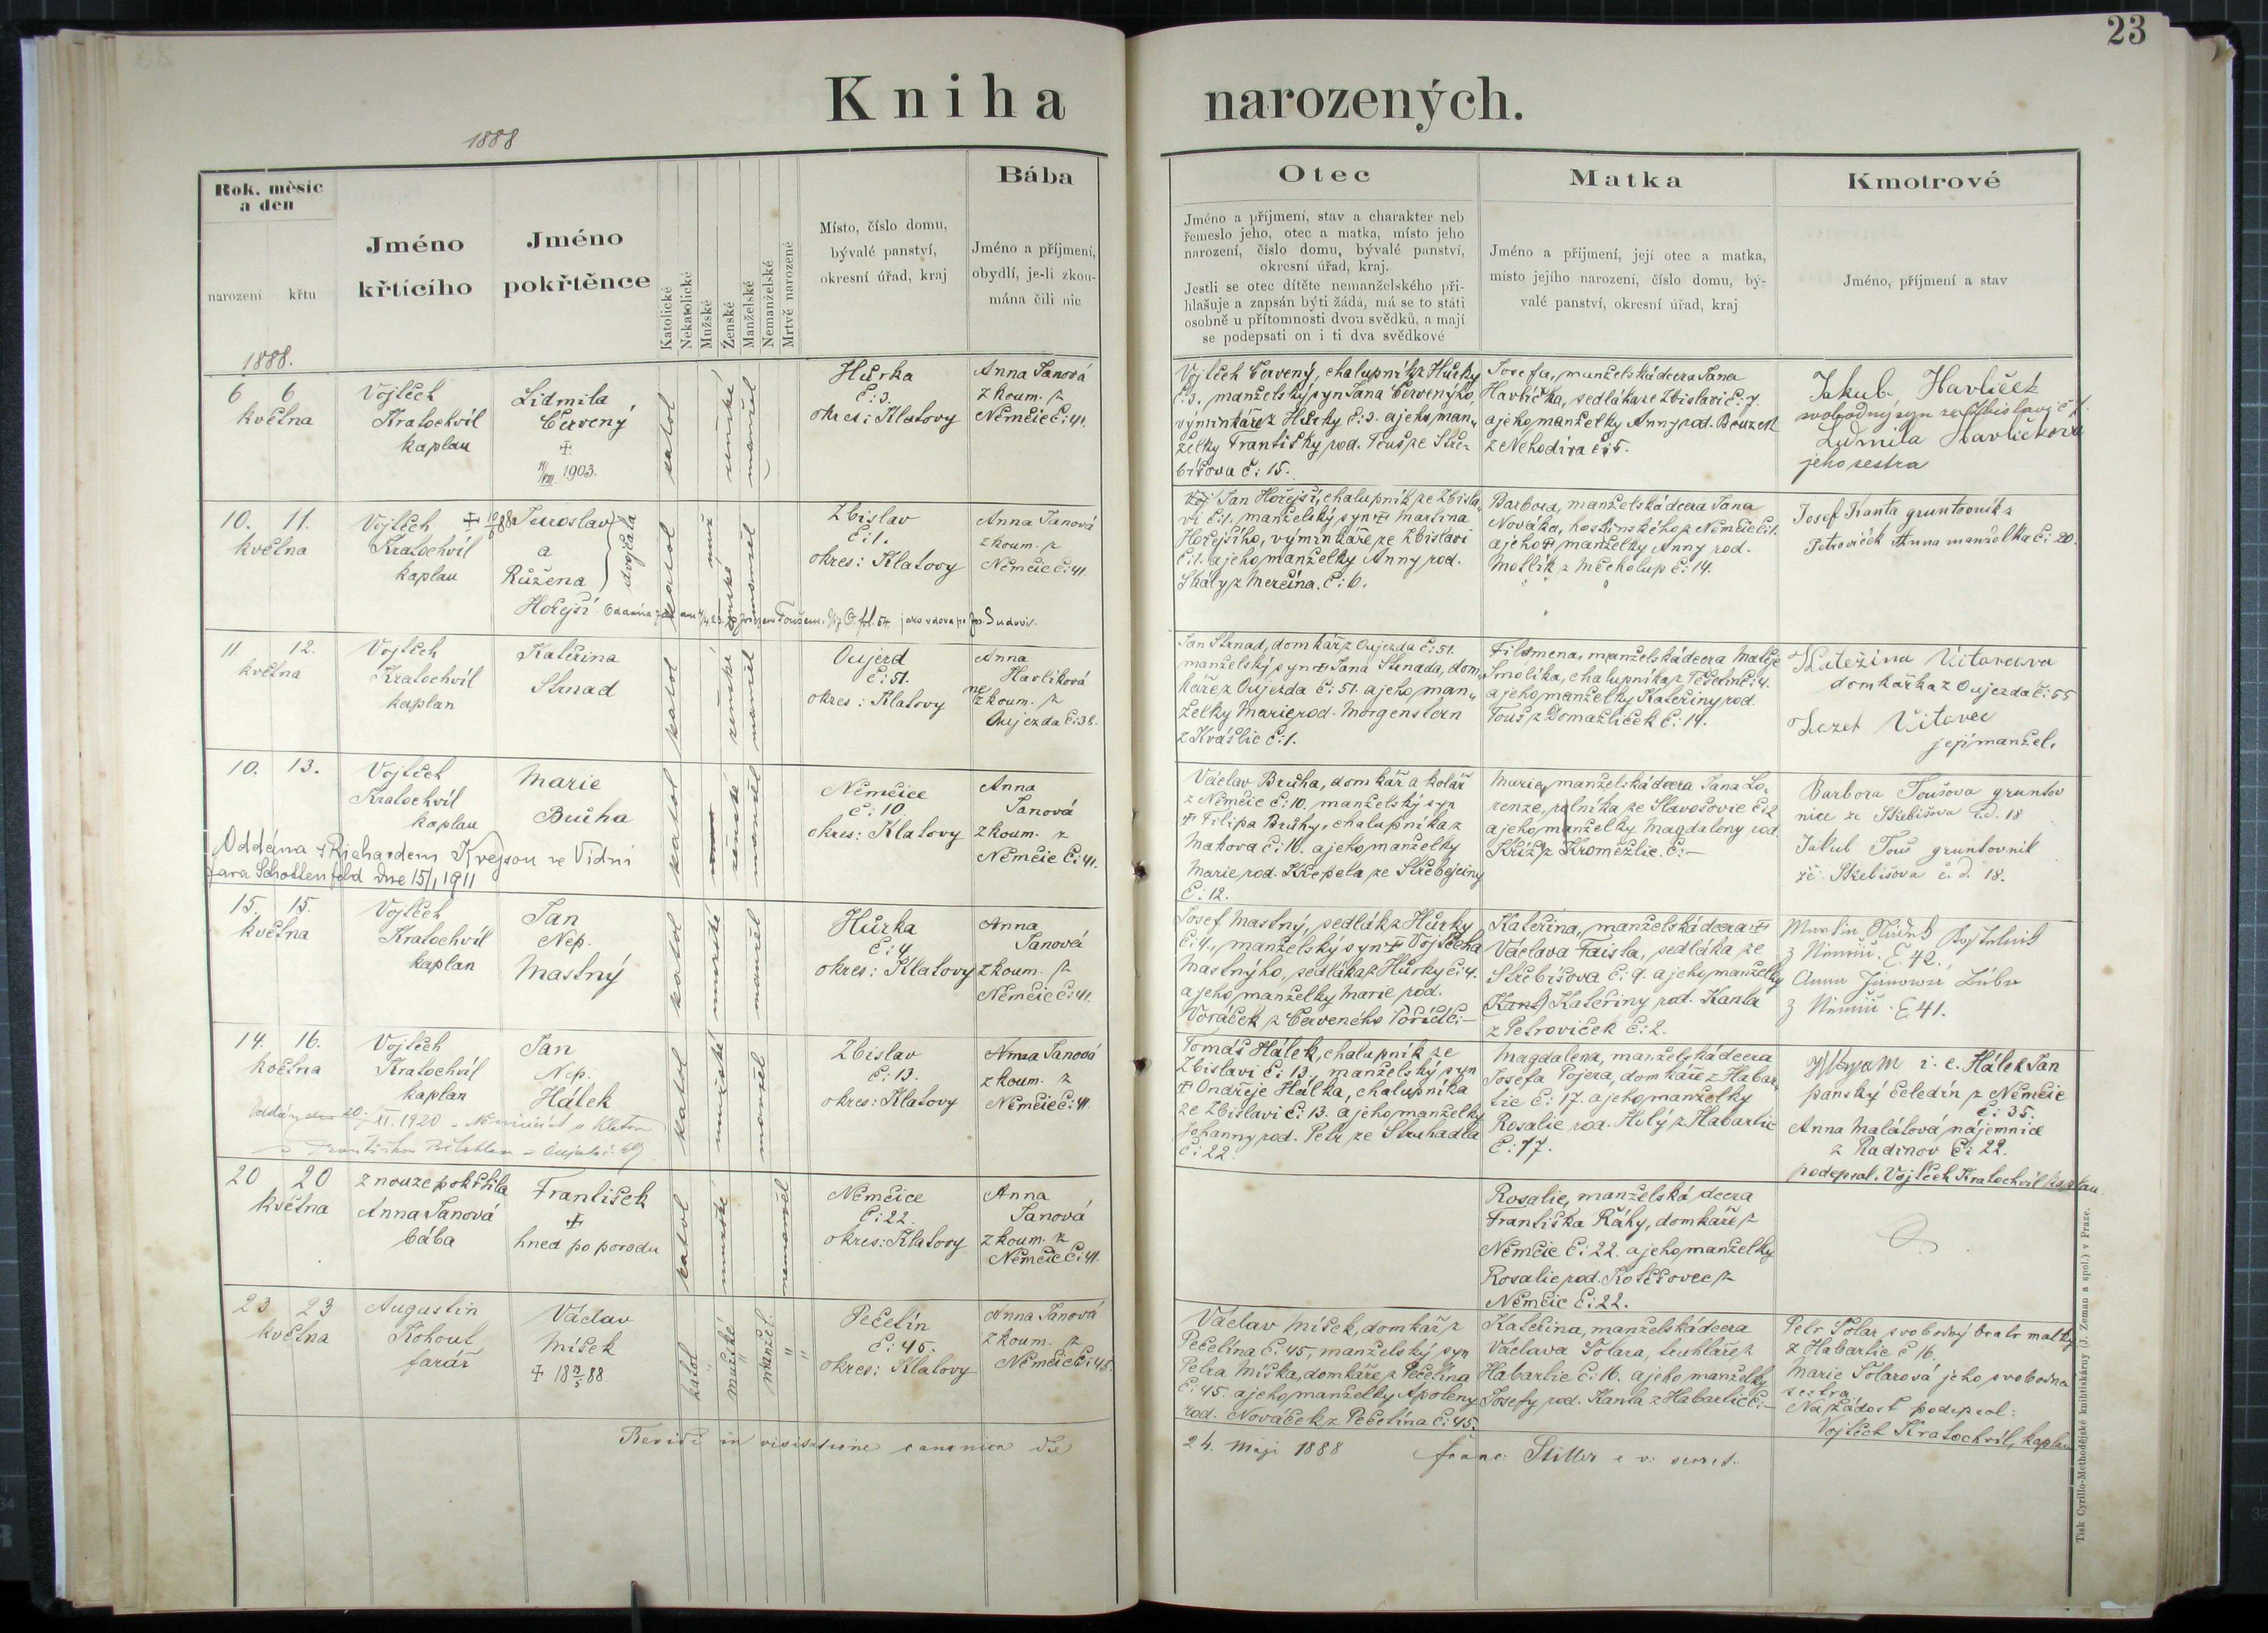 23
Kniha narozených.
1888
Rok, měsíc
a den
narození
křtu
Jméno
křtícího
Jméno
pokřtěnce
Katolické
Nekatolické
Mužské
Ženské
Manželské
Nemanželské
Mrtvě narozené
Místo, číslo domu,
bývalé panství,
okresní úřad, kraj
Bába
Jméno a příjmení,
obydlí, je-li zkou-
mána čili nic
Otec
Jméno a příjmení, stav a charakter neb
řemeslo jeho, otec a matka, místo jeho
narození, číslo domu, bývalé panství,
okresní úřad, kraj.
Jestli se otec dítěte nemanželského při-
hlašuje a zapsán býti žádá, má se to státi
osobně u přítomnosti dvou svědků, a mají
se podepsati on i ti dva svědkové
Matka
Jméno a příjmení, její otec a matka,
místo jejího narození, číslo domu, bý-
valé panství, okresní úřad, kraj
Kmotrové
Jméno, příjmení a stav
1888.
6 6
května
Vojtěch
Kratochvíl
kaplan
Lidmila
Červený
+
1903.
katol
ženské
manžel
Hůrka
č: 3.
okres: Klatovy
Anna Janová
zkoum. z
Němčic č: 41.
Vojtěch Červený, chalupník z Hůrky
č: 3. manželský syn Jana Červenýho,
výminkáře z Hůrky č: 3. a jeho man-
želky Františky rod. Touš ze Stře-
bišova č: 15.
Josefa, manželská dcera Jana
Havlíčka, sedláka ze Zbislavi č: 7.
a jeho manželky Anny rod. Bouzek
z Nehodiva č: 5.
Jakub Havlíček
svobodný syn ze Zbislavi č 7.
Ludmila Havlíčkova
jeho sestra
10. 11.
května
Vojtěch
Kratochvíl
kaplan
Jaroslav
a
Růžena
Hořejší
dvojčata
katol
muž
ženské
manžel
Zbislav
č: 1.
okres: Klatovy
Anna Janová
zkoum. z
Němčic č: 41.
Jan Hořejší, chalupník ze Zbisla-
vi č: 1. manželský syn + Martina
Hořejšího, výminkáře ze Zbislavi
č: 1. a jeho manželky Anny rod.
Skály z Merčína. č: 6.
Barbora, manželská dcera Jana
Nováka, hostinského z Němčic č: 1.
a jeho + manželky Anny rod.
Motlík z Měcholup č: 14.
Josef Kanta gruntovník z
Petroviček Anna manželka č: 20.
11. 12.
května
Vojtěch
Kratochvíl
kaplan
Kateřina
Strnad
katol
ženské
manžel
Oujezd
č: 51.
okres: Klatovy
Anna
Havlíková
nezkoum. z
Oujezda č: 38.
Jan Strnad, domkář z Oujezda č: 51.
manželský syn + Jana Strnada, dom-
káře z Oujezda č: 51. a jeho man-
želky Marie rod. Morgenstern
z Kvášlic č: 1.
Filomena, manželská dcera Matěje
Smolíka, chalupníka z Těšetin č: 4.
a jeho manželky Kateřiny rod.
Touš z Domažliček č: 14.
Katežina Vitovcova
domkařka z Oujezda č: 55
Jozef Vitovec
její manžel.
10. 13.
Vojtěch
Kratochvíl
kaplan
Marie
Bruha
Oddána s Richardem Krejsou ve Vídni
fara Schottenfeld dne 15/1 1911
katol
ženské
manžel
Němčice
č: 10.
okres: Klatovy
Anna
Janová
zkoum. z
Němčic č: 41.
Václav Bruha, domkář a kolář
z Němčic č: 10. manželský syn
+ Filipa Bruhy, chalupníka z
Makova č: 16. a jeho manželky
Marie rod. Křepela ze Střebejčiny
č: 12.
Marie, manželská dcera Jana Lo-
renze, rolníka ze Slavošovic č: 2
a jeho manželky Magdaleny rod.
Kříž z Kroměžlic. č: —
Barbora Toušova gruntov
nice ze Střebišova č.d. 18
Jakub Touš gruntovnik
ze Střebišova č. d. 18.
15. 15.
května
Vojtěch
Kratochvíl
kaplan
Jan
Nep.
Mastný
katol
mužské
manžel
Hůrka
č: 4.
okres: Klatovy
Anna
Janová
zkoum. z
Němčic č: 41.
Josef Mastný, sedlák z Hůrky
č: 4., manželský syn + Vojtěcha
Mastnýho, sedláka z Hůrky č: 4.
a jeho manželky Marie rod.
Voráček z Červeného Poříčí č: —
Kateřina, manželská dcera +
Václava Faista, sedláka ze
Střebišova č: 9. a jeho manželky
Kateřiny rod. Kanta
z Petroviček č: 2.
Č. 42.
Č 41.
14. 16.
května
Vojtěch
Kratochvíl
kaplan
Jan
Nep.
Hálek
katol
mužské
manžel
Zbislav
č: 13.
okres: Klatovy
Anna Janová
zkoum. z
Němčic č: 41.
Tomáš Hálek, chalupník ze
Zbislavi č: 13., manželský syn
+ Ondřeje Hálka, chalupníka
ze Zbislavi č: 13. a jeho manželky
Johanny rod. Petr ze Struhadla
č: 22.
Magdalena, manželská dcera
Josefa Pojera, domkáře z Habar-
tic č: 17. a jeho manželky
Rosalie rod. Holý z Habartic
č: 17.
i. e. Hálek Jan
panský čeledín z Němčic
č: 35.
Anna Malátová nájemnice
z Radinov č: 22.
podepsal. Vojtěch Kratochvíl kaplan
20 20
května
z nouze pokřtila
Anna Janová
bába
František
+
hned po porodu
katol
mužské
nemanžel
Němčice
č: 22.
okres: Klatovy
Anna
Janová
zkoum. z
Němčic č: 41.
Rosalie, manželská dcera
Františka Ráhy, domkáře z
Němčic č: 22. a jeho manželky
Rosalie rod. Koščovec z
Němčic č: 22.
23 23
května
Augustin
Kohout
farář
Václav
Míšek
katol
mužské
manžel.
Pečetín
č: 45.
okres: Klatovy
Anna Janová
zkoum. z
Němčic
Václav Míšek, domkář z
Pečetína č: 45, manželský syn
Petra Míška, domkáře z Pečetína
č: 45. a jeho manželky Apoleny
rod. Nováček z Pečetína č: 45.
Kateřina, manželská dcera
Václava Tolara, truhláře z
Habartic č: 16. a jeho manželky
Josefy rod. Kanta z Habartic č: —
Petr Tolar svobodný bratr matky
z Habartic č 16.
Marie Tolarová jeho svobodna
sestra
Na žádost podepsal:
Vojtěch Kratochvíl, kaplan
Revidi in visitatione canonica die
24. Maji 1888
Tisk Cyrillo-Methodějské knihtiskárny (J. Zeman a spol.) v Praze.